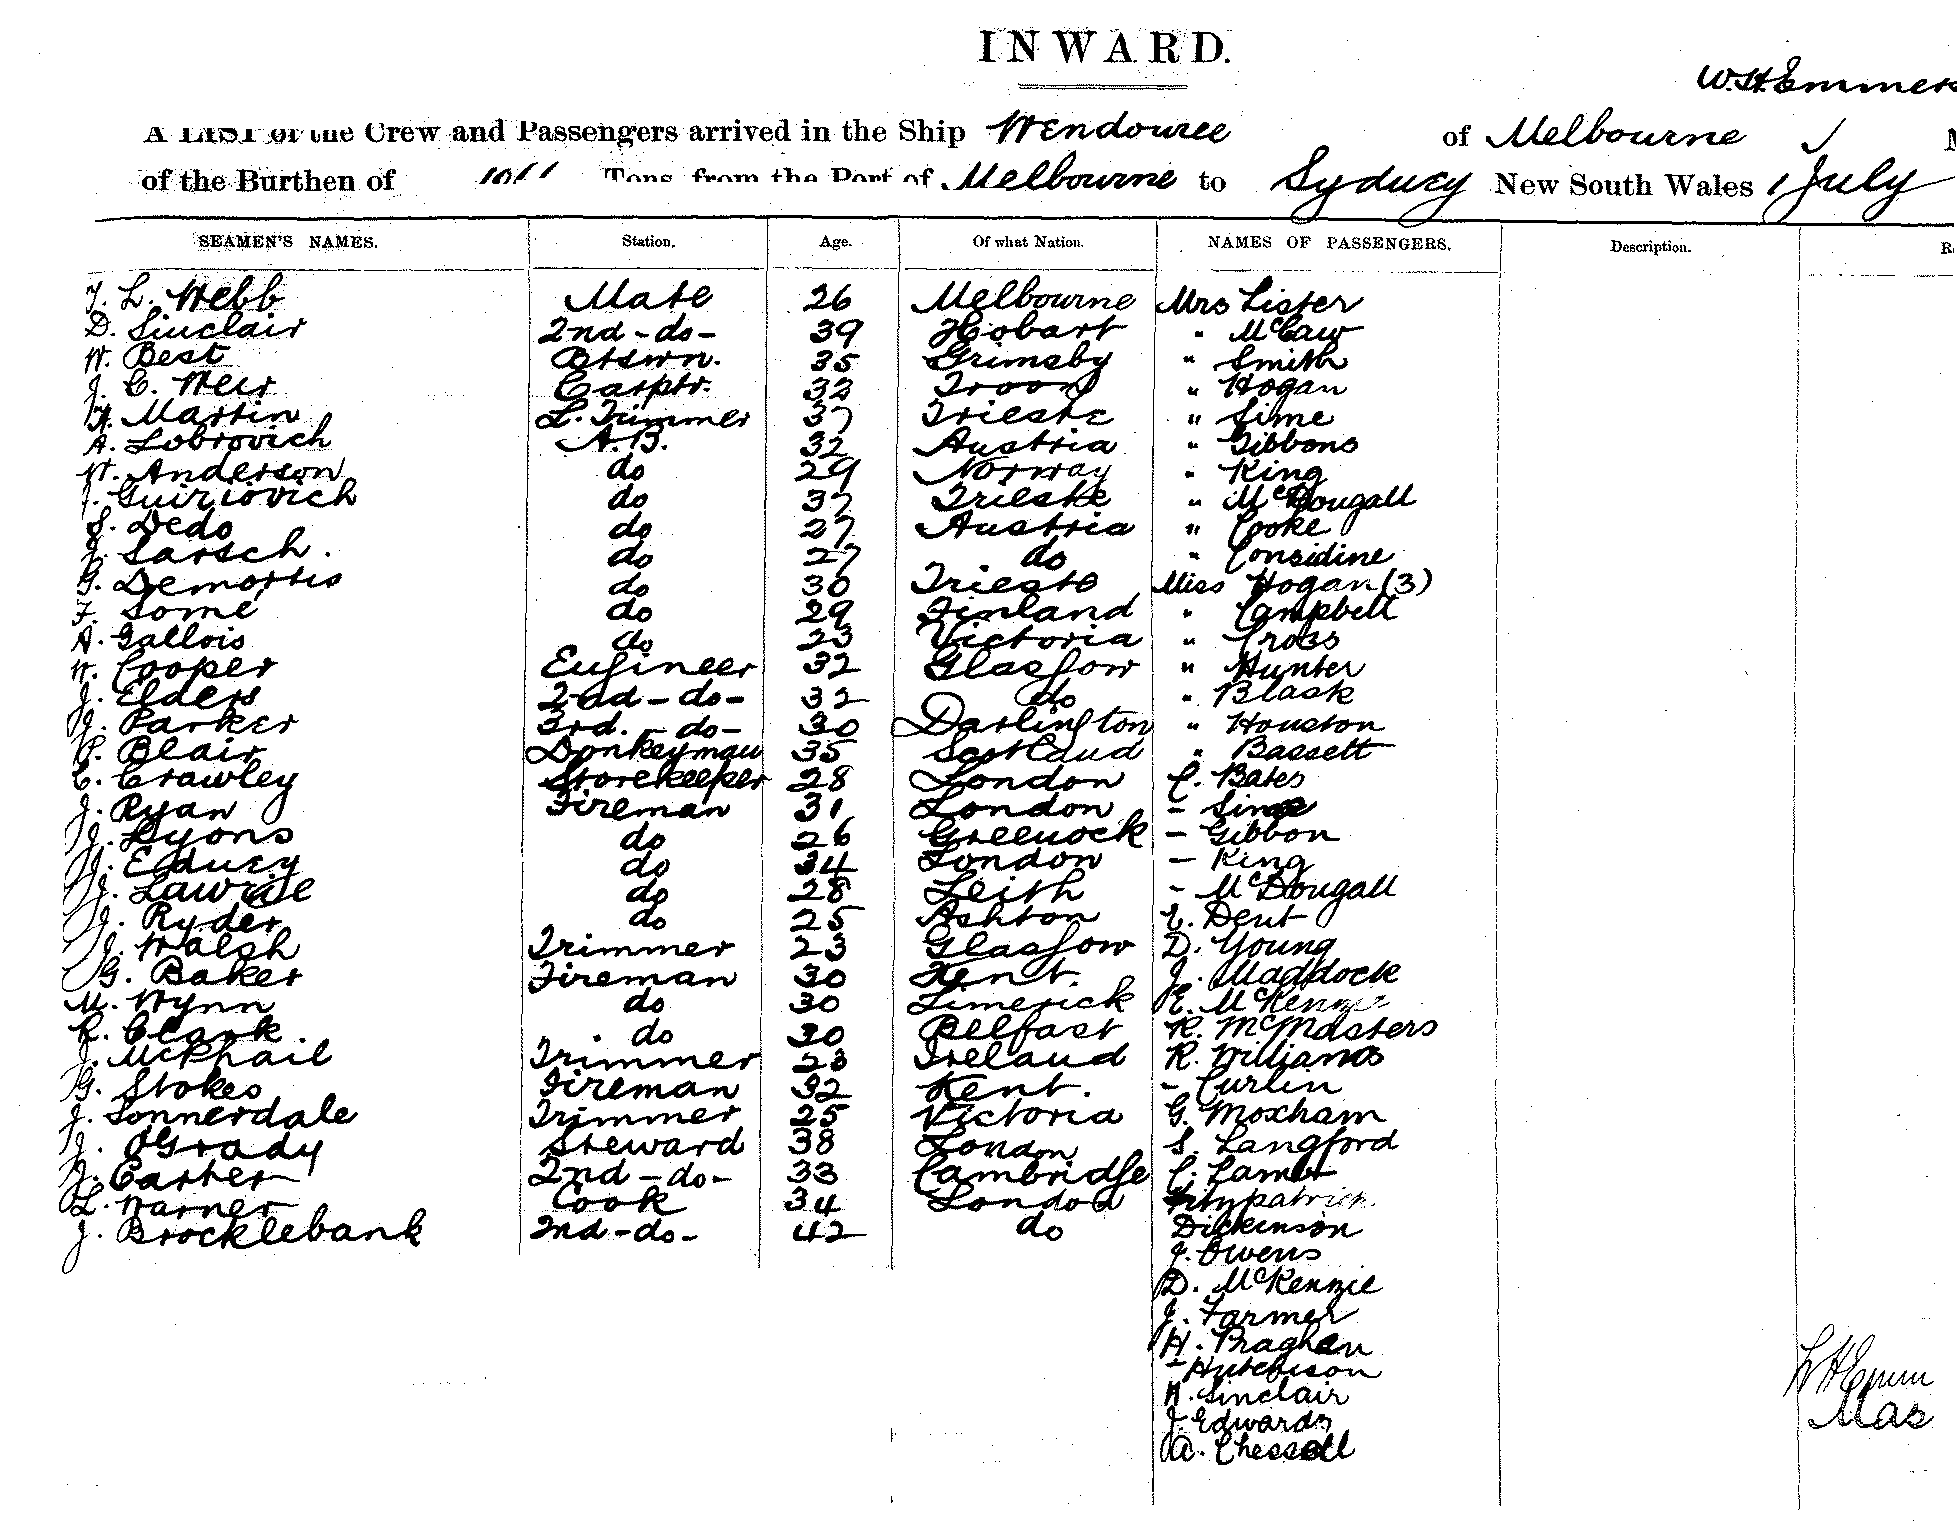 INWARD.
W.H. Emmers
A LIST of the Crew and Passengers arrived in the Ship Wendouree of Melbourne
of the Burthen of Tons, from the Port of Melbourne to Sydney New South Wales 1 July
SEAMEN'S NAMES. Station. Age. Of what Nation. NAMES OF PASSENGERS. Description. R
L. Webb Mate 26 Melbourne Mrs Lister
D. Sinclair 2nd-do- 39 Hobart " McCaw
W. Best Btswn. 35 Grimsby " Smith
J. C. Weir Carptr. 33 Troon " Hogan
Martin L. Trimmer 37 Trieste " Sime
A. Lobrovich A.B. 32 Austria " Gibbons
W. Anderson do 29 Norway " King
J. Guiriovich do 37 Trieste " McDougall
S. Dedo do 27 Austria " Cooke
J. Sarsch. do 27 do " Considine
G. Demortis do 30 Trieste Miss Hogan (3)
F. Some do 29 Finland " Campbell
A. Gallois do 23 Victoria " Cross
W. Cooper Engineer 32 Glasgow " Hunter
J. Elders 2nd-do- 32 do " Black
J. Parker 3rd.-do- 30 Darlington " Houston
P. Blair Donkeyman 35 Scotland " Bassett
C. Crawley Storekeeper 28 London C. Bates
J. Ryan Fireman 31 London - Sime
J. Lyons do 26 Greenock - Gibbon
J. do 34 London - King
J. Lawrie do 28 Leith - McDougall
J. Ryder do 25 Ashton E. Dent
J. Walsh Trimmer 23 Glasgow D. Young
G. Baker Fireman 30 Kent. J. Maddock
M. Wynn do 30 Limerick E. McKenzie
R. Clark do 30 Belfast R. McMasters
J. McPhail Trimmer 23 Ireland R. Williams
G. Stokes Fireman 32 Kent. - Curlin
J. Sonnerdale Trimmer 25 Victoria G. Moxham
J. OGrady Steward 38 London S. Langford
J. Carter 2nd-do- 33 Cambridge C. Lamb
L. Warner Cook 34 London Fitzpatrick
J. Brocklebank 2nd-do- 42 do Dickinson
J. Owens
D. McKenzie
J. Farmer
H. Braghan
- Hutchison
W. Sinclair
J. Edwards
A. Chessell
W H Emm
Mas